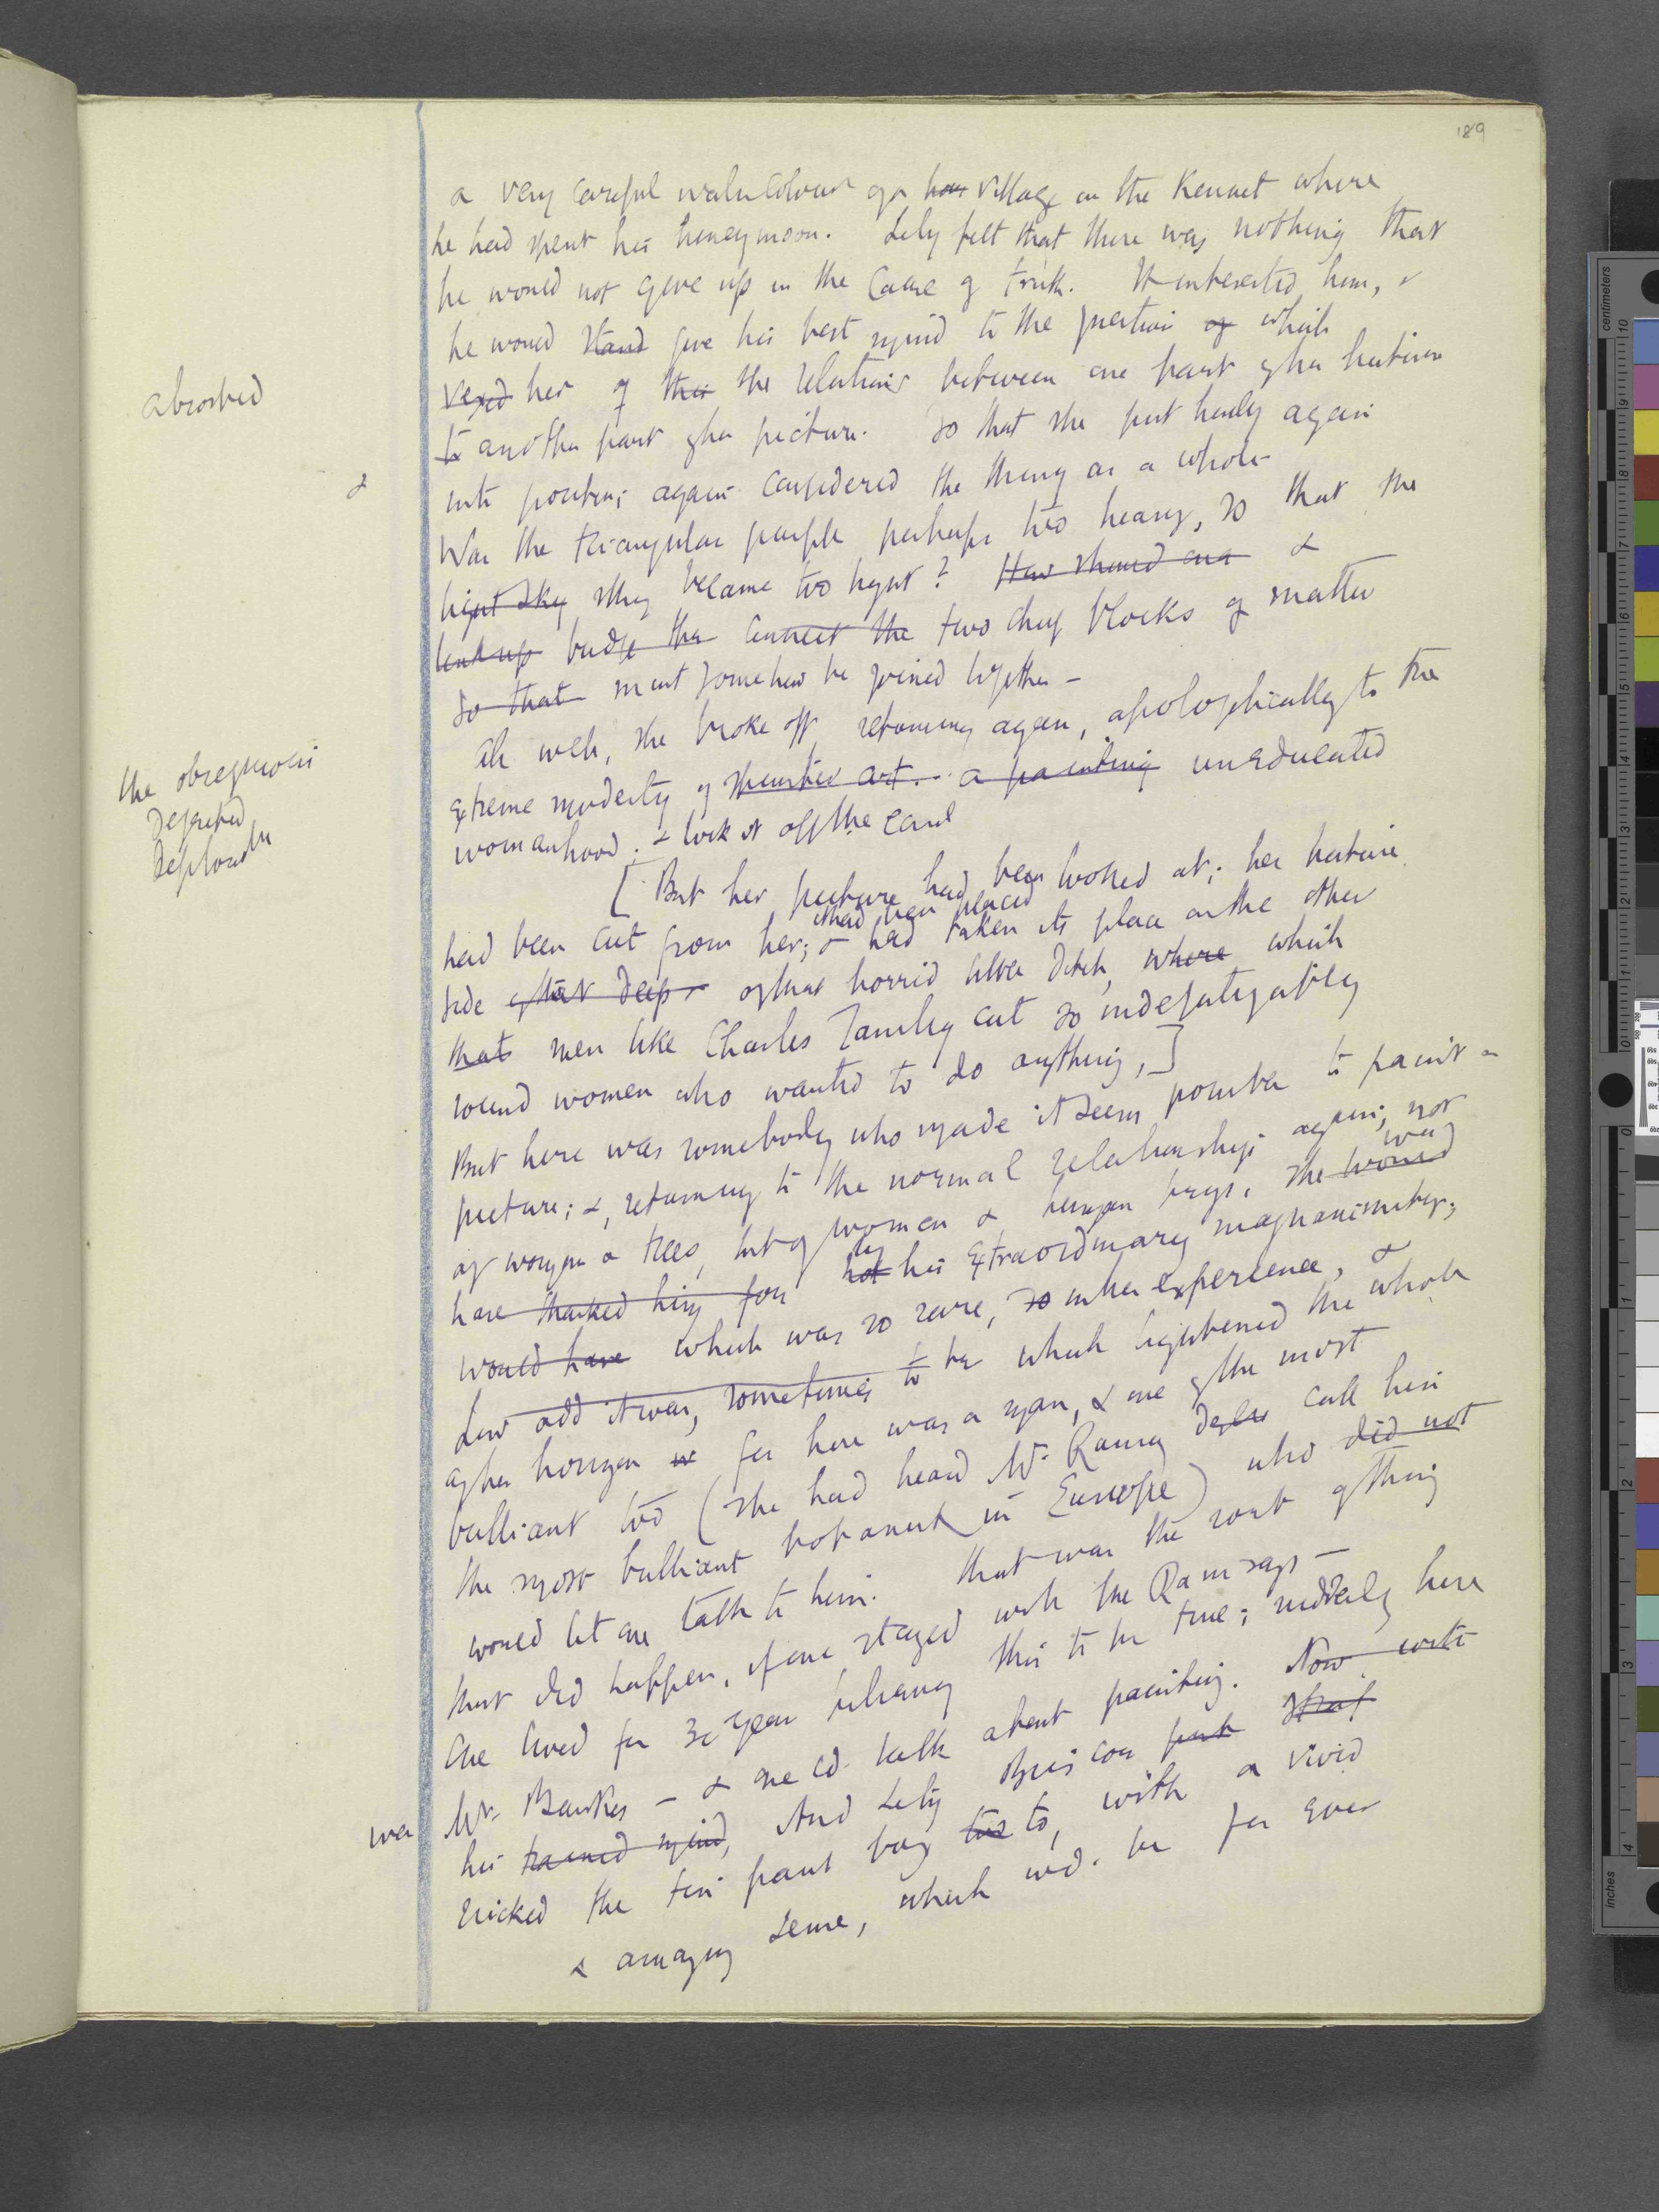 189
a very careful watercolour of a village on the Kennet where
he had spent his honeymoon. Lily felt that there was nothing that
he would not give up in the cause of truth. It interested him, &
he would stand give his best mind to the question of which
absorbed
vexed her of the relations between one part of her picture
to another part of her picture. So that she put hardly again
&
into position; again considered the thing as a whole
Was the triangular purple perhaps too heavy, so that the
light sky became too light? How should one &
link up bridge the connect the two deep blocks of matter
so that must somehow be joined together -
Ah well, she broke off, returning again, apologetically to the
the obsequious
dejected
deplorable
extreme modesty of art. a painting uneducated
womanhood. & took it off the easel
[But her picture had been looked at; her picture
had been placed
had been cut from her; & had taken its place on the other
side of that deep of that horrid little ditch, where which
that men like Charles Tansley cut so indefatigably
round women who wanted to do anything,]
But here was somebody who made it seem possible to paint a
picture; &, returning to the normal relationships again; not
of women & trees, but of women & human beings, she would
was
have thanked him for his extraordinary magnanimity;
would have which was so rare, so in her experience, &
how odd it was, sometimes to be which lightened the whole
of her horizon for here was a man, & one of the most
brilliant too (she had heard Mr. Ramsay call him
the most brilliant botanist in Europe) who did not
would let one talk to him. That was the sort of thing
that did happen, if one stayed with the Ramsays -
One lived for 30 years believing this to be true; suddenly here
was
Mr. Bankes - & one cd. talk about painting. Now with
his trained mind, And Lily Briscoe
nicked the tin paint box to, with a vivid
& amazing sense, which wd. be for ever
centimeters
inches